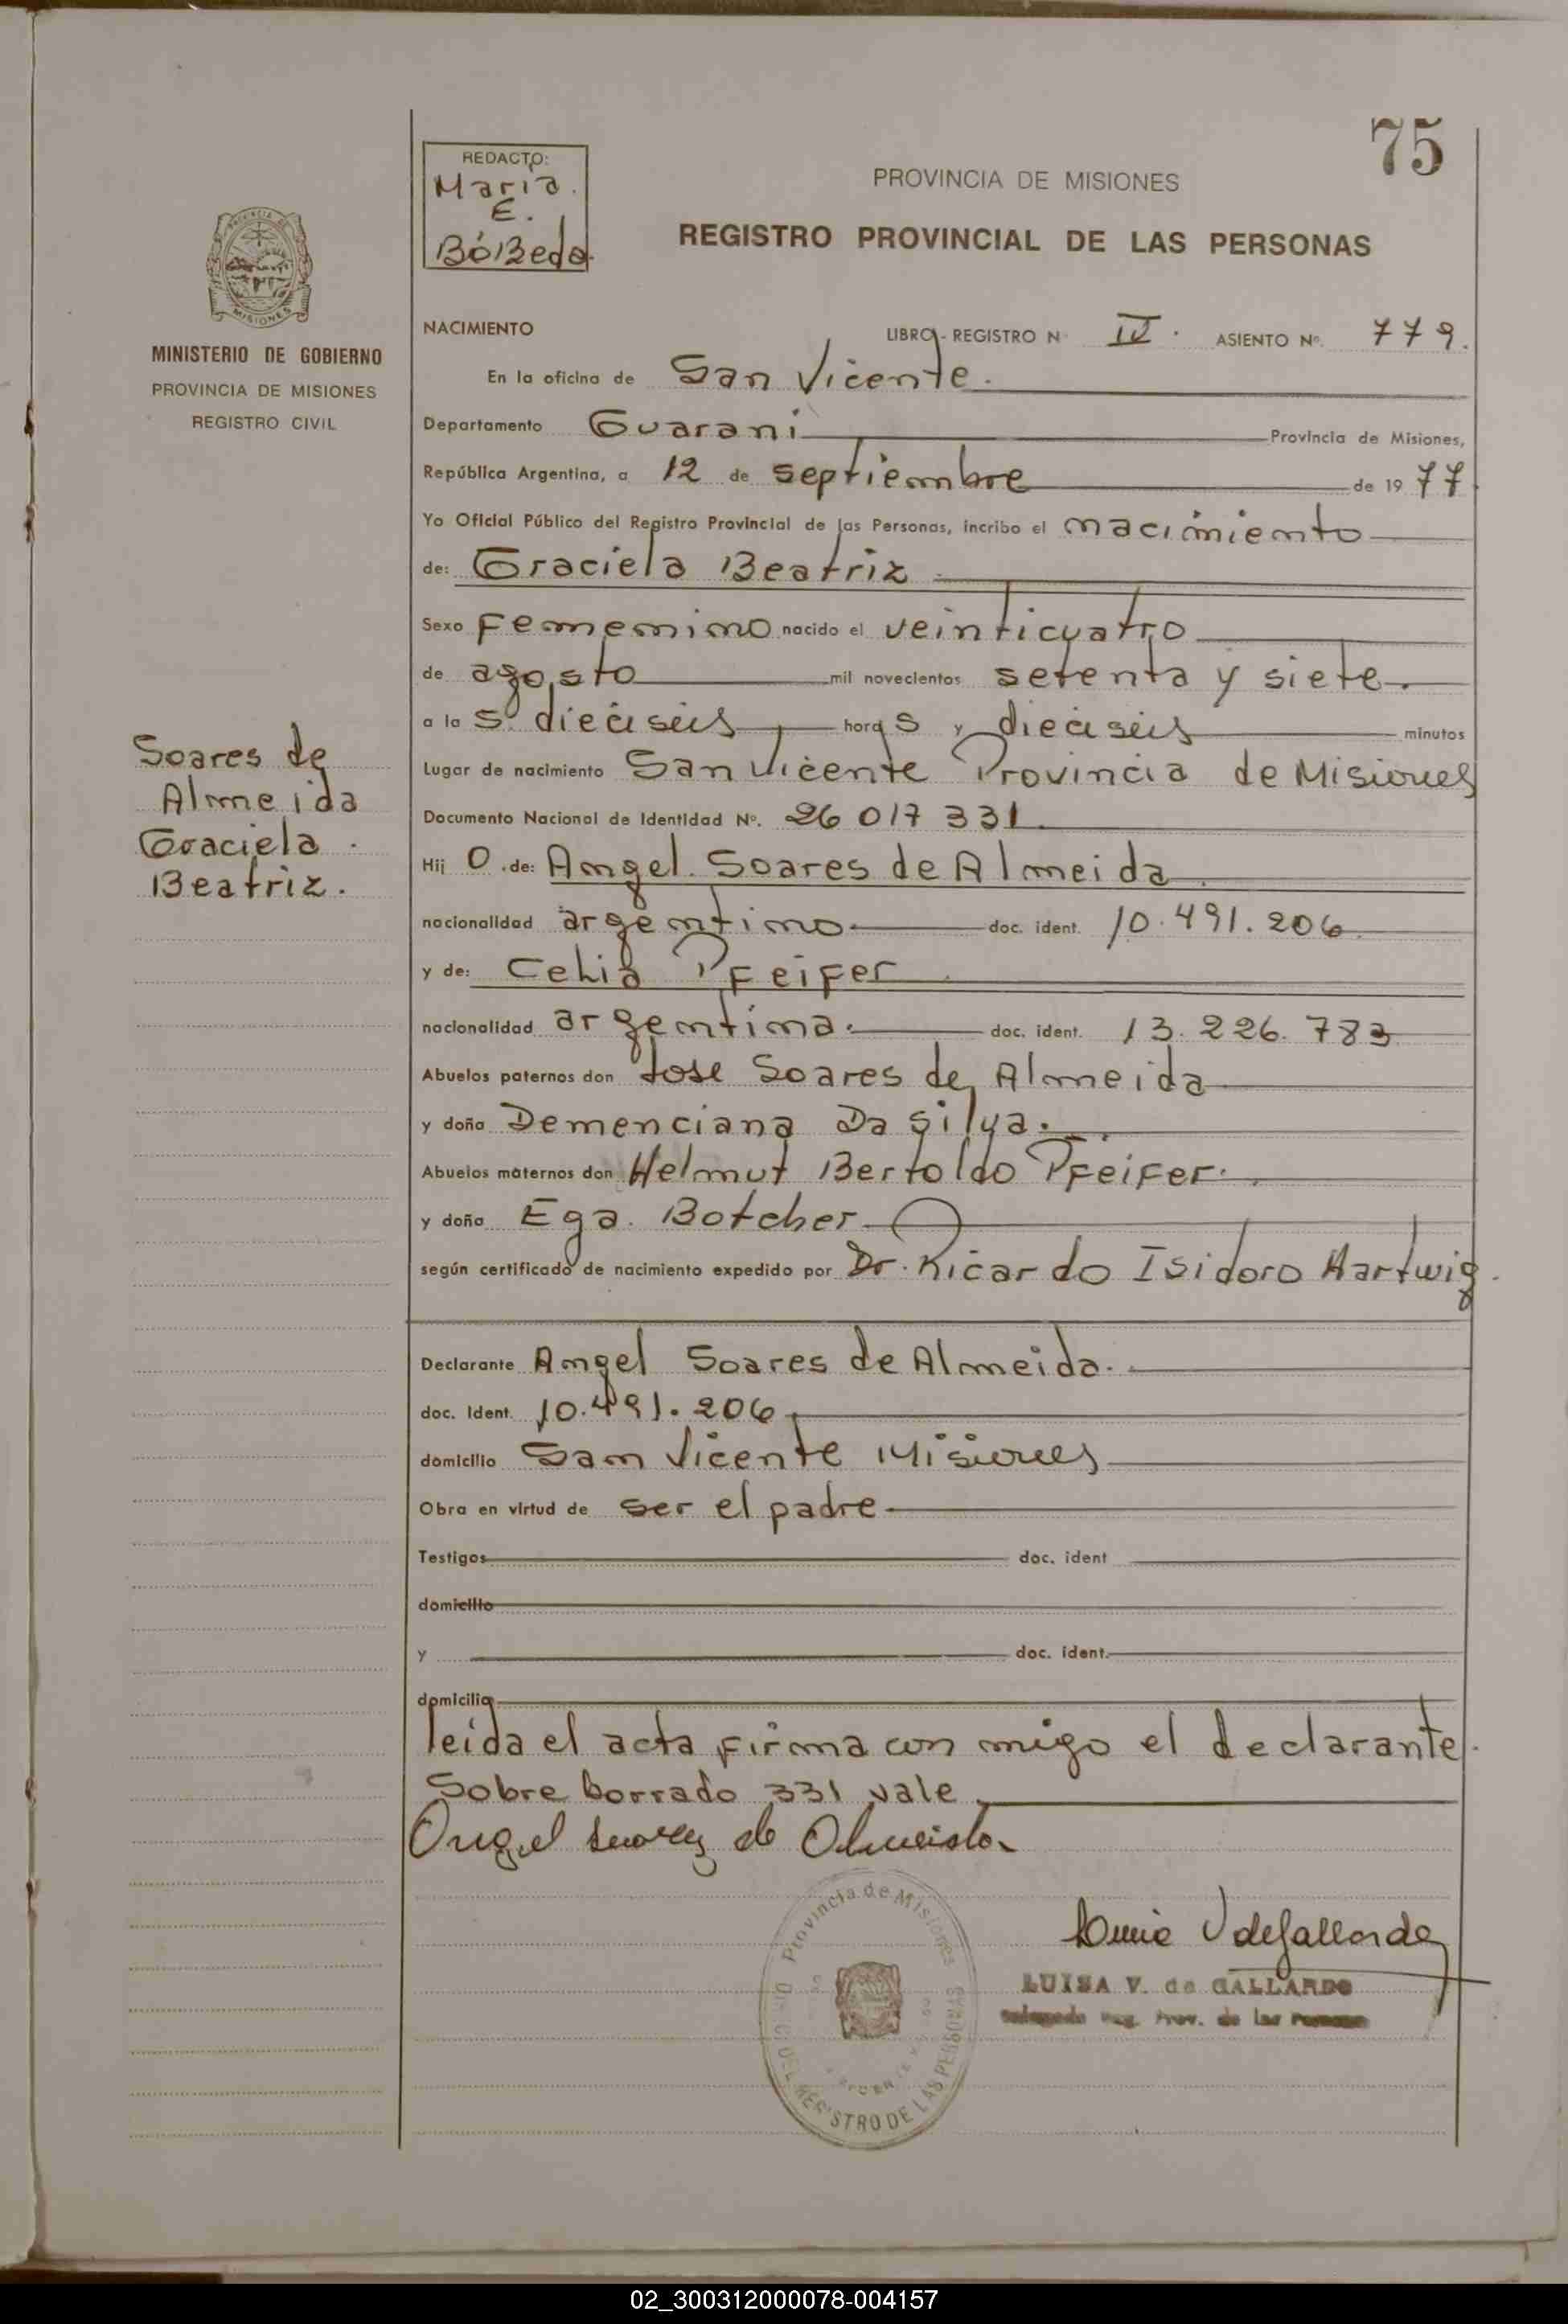 75
REDACTO:
Maria.
E.
BóBeda.
PROVINCIA DE MISIONES
REGISTRO PROVINCIAL DE LAS PERSONAS
PROVINCIA DE
MISIONES
MINISTERIO DE GOBIERNO
PROVINCIA DE MISIONES
REGISTRO CIVIL
NACIMIENTO LIBRO - REGISTRO N° IV. ASIENTO N°. 779.
En la oficina de San Vicente.
Departamento Guarani Provincia de Misiones,
República Argentina, a 12 de septiembre de 19 77
Yo Oficial Público del Registro Provincial de las Personas, incribo el nacimiento
de: Graciela Beatriz.
Sexo femenino nacido el veinticuatro
de agosto mil novecientos setenta y siete.
a la s dieciseis hora s y dieciseis minutos
Lugar de nacimiento San Vicente Provincia de Misiones
Documento Nacional de Identidad N°. 26 017 331
Hij o de: Angel Soares de Almeida.
nacionalidad argentino doc. ident. 10.491.206
y de: Celia Pfeifer.
nacionalidad argentina. doc. ident. 13.226.783
Abuelos paternos don Jose Soares de Almeida
y doña Demenciana Da Silva.
Abuelos maternos don Helmut Bertoldo Pfeifer.
y doña Ega. Botcher
según certificado de nacimiento expedido por Dr. Ricardo Isidoro Hartwig.
Soares de
Almeida
Graciela.
Beatriz.
Declarante Angel Soares de Almeida.
doc. Ident. 10.491.206
domicilio San Vicente Misiones
Obra en virtud de ser el padre
Testigos doc. ident
domicilio
y doc. ident.
domicilio
leida el acta firma con migo el declarante.
Sobre borrado 331 vale
Angel Suarez de Almeida
Provincia de Misiones
REGISTRO DE LAS PERSONAS
LUISA V. de GALLARDO
Reg. Prov. de las Personas
02_300312000078-004157